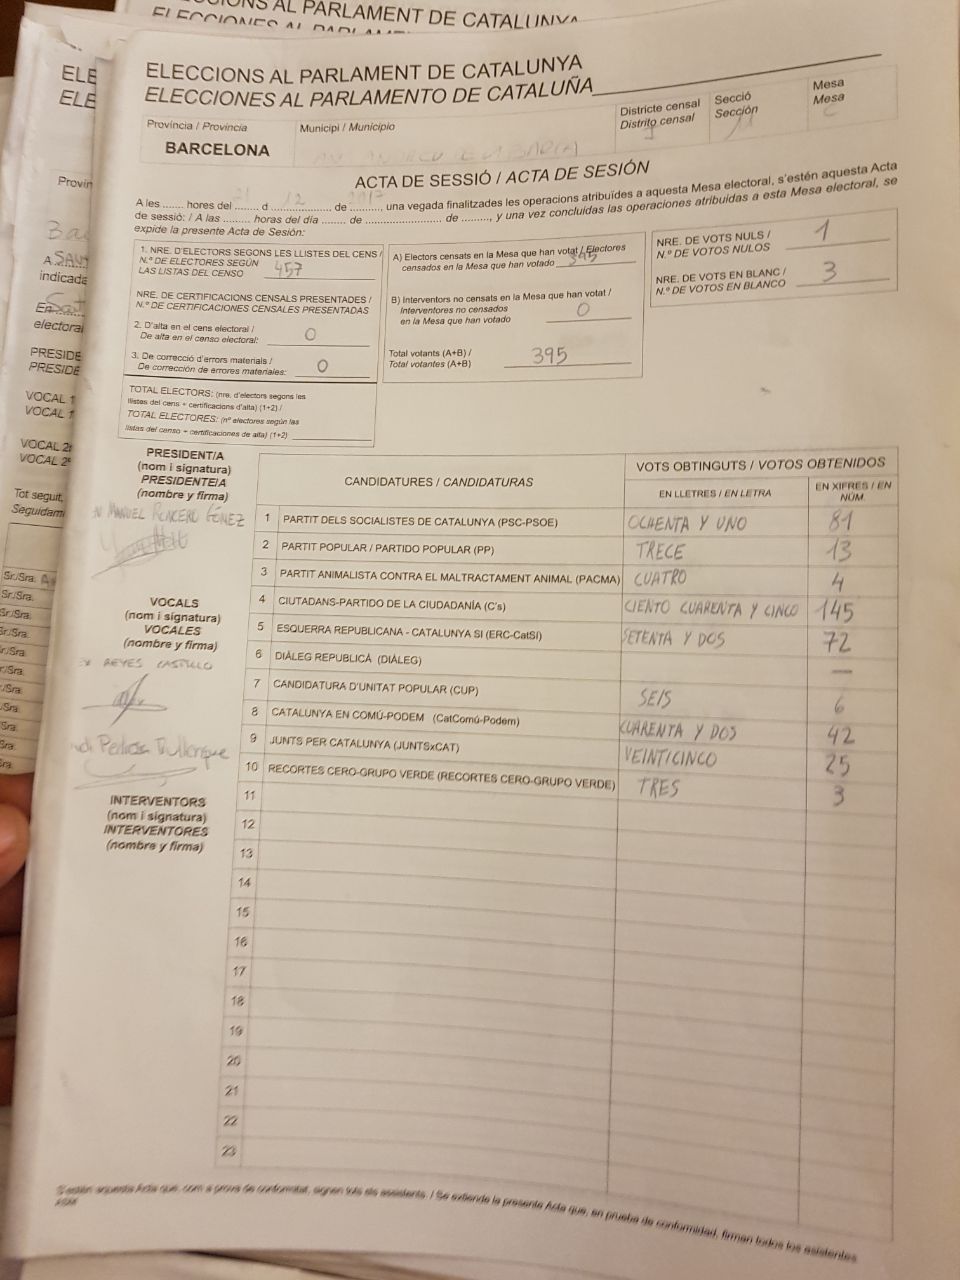 ELECCIONS AL PARLAMENT DE CATALUNYA
ELECCIONES AL PARLAMENTO DE CATALUÑA
Província / Provincia
BARCELONA
Municipi / Municipio
SANT ANDREU DE LA BARCA
Districte censal
Distrito censal
Secció
Sección
Mesa
Mesa
ACTA DE SESSIÓ / ACTA DE SESIÓN
A les ....... hores del 21 d 12 de 2017, una vegada finalitzades les operacions atribuïdes a aquesta Mesa electoral, s'estén aquesta Acta
de sessió: / A las ......... horas del día ....... de ....................... de ........, y una vez concluidas las operaciones atribuidas a esta Mesa electoral, se
expide la presente Acta de Sesión:
1. NRE. D'ELECTORS SEGONS LES LLISTES DEL CENS /
N.º DE ELECTORES SEGÚN
LAS LISTAS DEL CENSO 457
NRE. DE CERTIFICACIONS CENSALS PRESENTADES /
N.º DE CERTIFICACIONES CENSALES PRESENTADAS
2. D'alta en el cens electoral /
De alta en el censo electoral: 0
3. De correcció d'errors materials /
De corrección de errores materiales: 0
TOTAL ELECTORS: (nre. d'electors segons les
llistes del cens + certificacions d'alta) (1+2) /
TOTAL ELECTORES: (nº electores según las
listas del censo + certificaciones de alta) (1+2)
A) Electors censats en la Mesa que han votat / Electores
censados en la Mesa que han votado 395
B) Interventors no censats en la Mesa que han votat /
Interventores no censados
en la Mesa que han votado 0
Total votants (A+B) /
Total votantes (A+B) 395
NRE. DE VOTS NULS /
N.º DE VOTOS NULOS 1
NRE. DE VOTS EN BLANC /
N.º DE VOTOS EN BLANCO 3
PRESIDENT/A
(nom i signatura)
PRESIDENTE/A
(nombre y firma)
MANUEL RONCERO GÓMEZ
VOCALS
(nom i signatura)
VOCALES
(nombre y firma)
REYES CASTILLO
INTERVENTORS
(nom i signatura)
INTERVENTORES
(nombre y firma)
CANDIDATURES / CANDIDATURAS
VOTS OBTINGUTS / VOTOS OBTENIDOS
EN LLETRES / EN LETRA
EN XIFRES / EN
NÚM.
1 PARTIT DELS SOCIALISTES DE CATALUNYA (PSC-PSOE) OCHENTA Y UNO 81
2 PARTIT POPULAR / PARTIDO POPULAR (PP) TRECE 13
3 PARTIT ANIMALISTA CONTRA EL MALTRACTAMENT ANIMAL (PACMA) CUATRO 4
4 CIUTADANS-PARTIDO DE LA CIUDADANÍA (C's) CIENTO CUARENTA Y CINCO 145
5 ESQUERRA REPUBLICANA - CATALUNYA SÍ (ERC-CatSí) SETENTA Y DOS 72
6 DIÀLEG REPUBLICÀ (DIÀLEG) —
7 CANDIDATURA D'UNITAT POPULAR (CUP) SEIS 6
8 CATALUNYA EN COMÚ-PODEM (CatComú-Podem) CUARENTA Y DOS 42
9 JUNTS PER CATALUNYA (JUNTSxCAT) VEINTICINCO 25
10 RECORTES CERO-GRUPO VERDE (RECORTES CERO-GRUPO VERDE) TRES 3
11
12
13
14
15
16
17
18
19
20
21
22
23
S'estén aquesta Acta que, com a prova de conformitat, signen tots els assistents. / Se extiende la presente Acta que, en prueba de conformidad, firman todos los asistentes